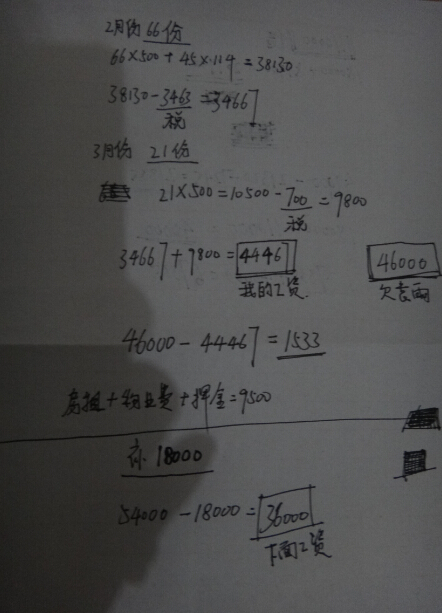 2月份 66份
66×500+45×114=38130
38130-3463=34667
税
3月份 21份
21×500=10500-700=9800
税
34667+9800=44467 46000
我的工资. 欠袁雨
46000-44467=1533
房租+物业费+押金=9500
18000
54000-18000=36000
下面工资